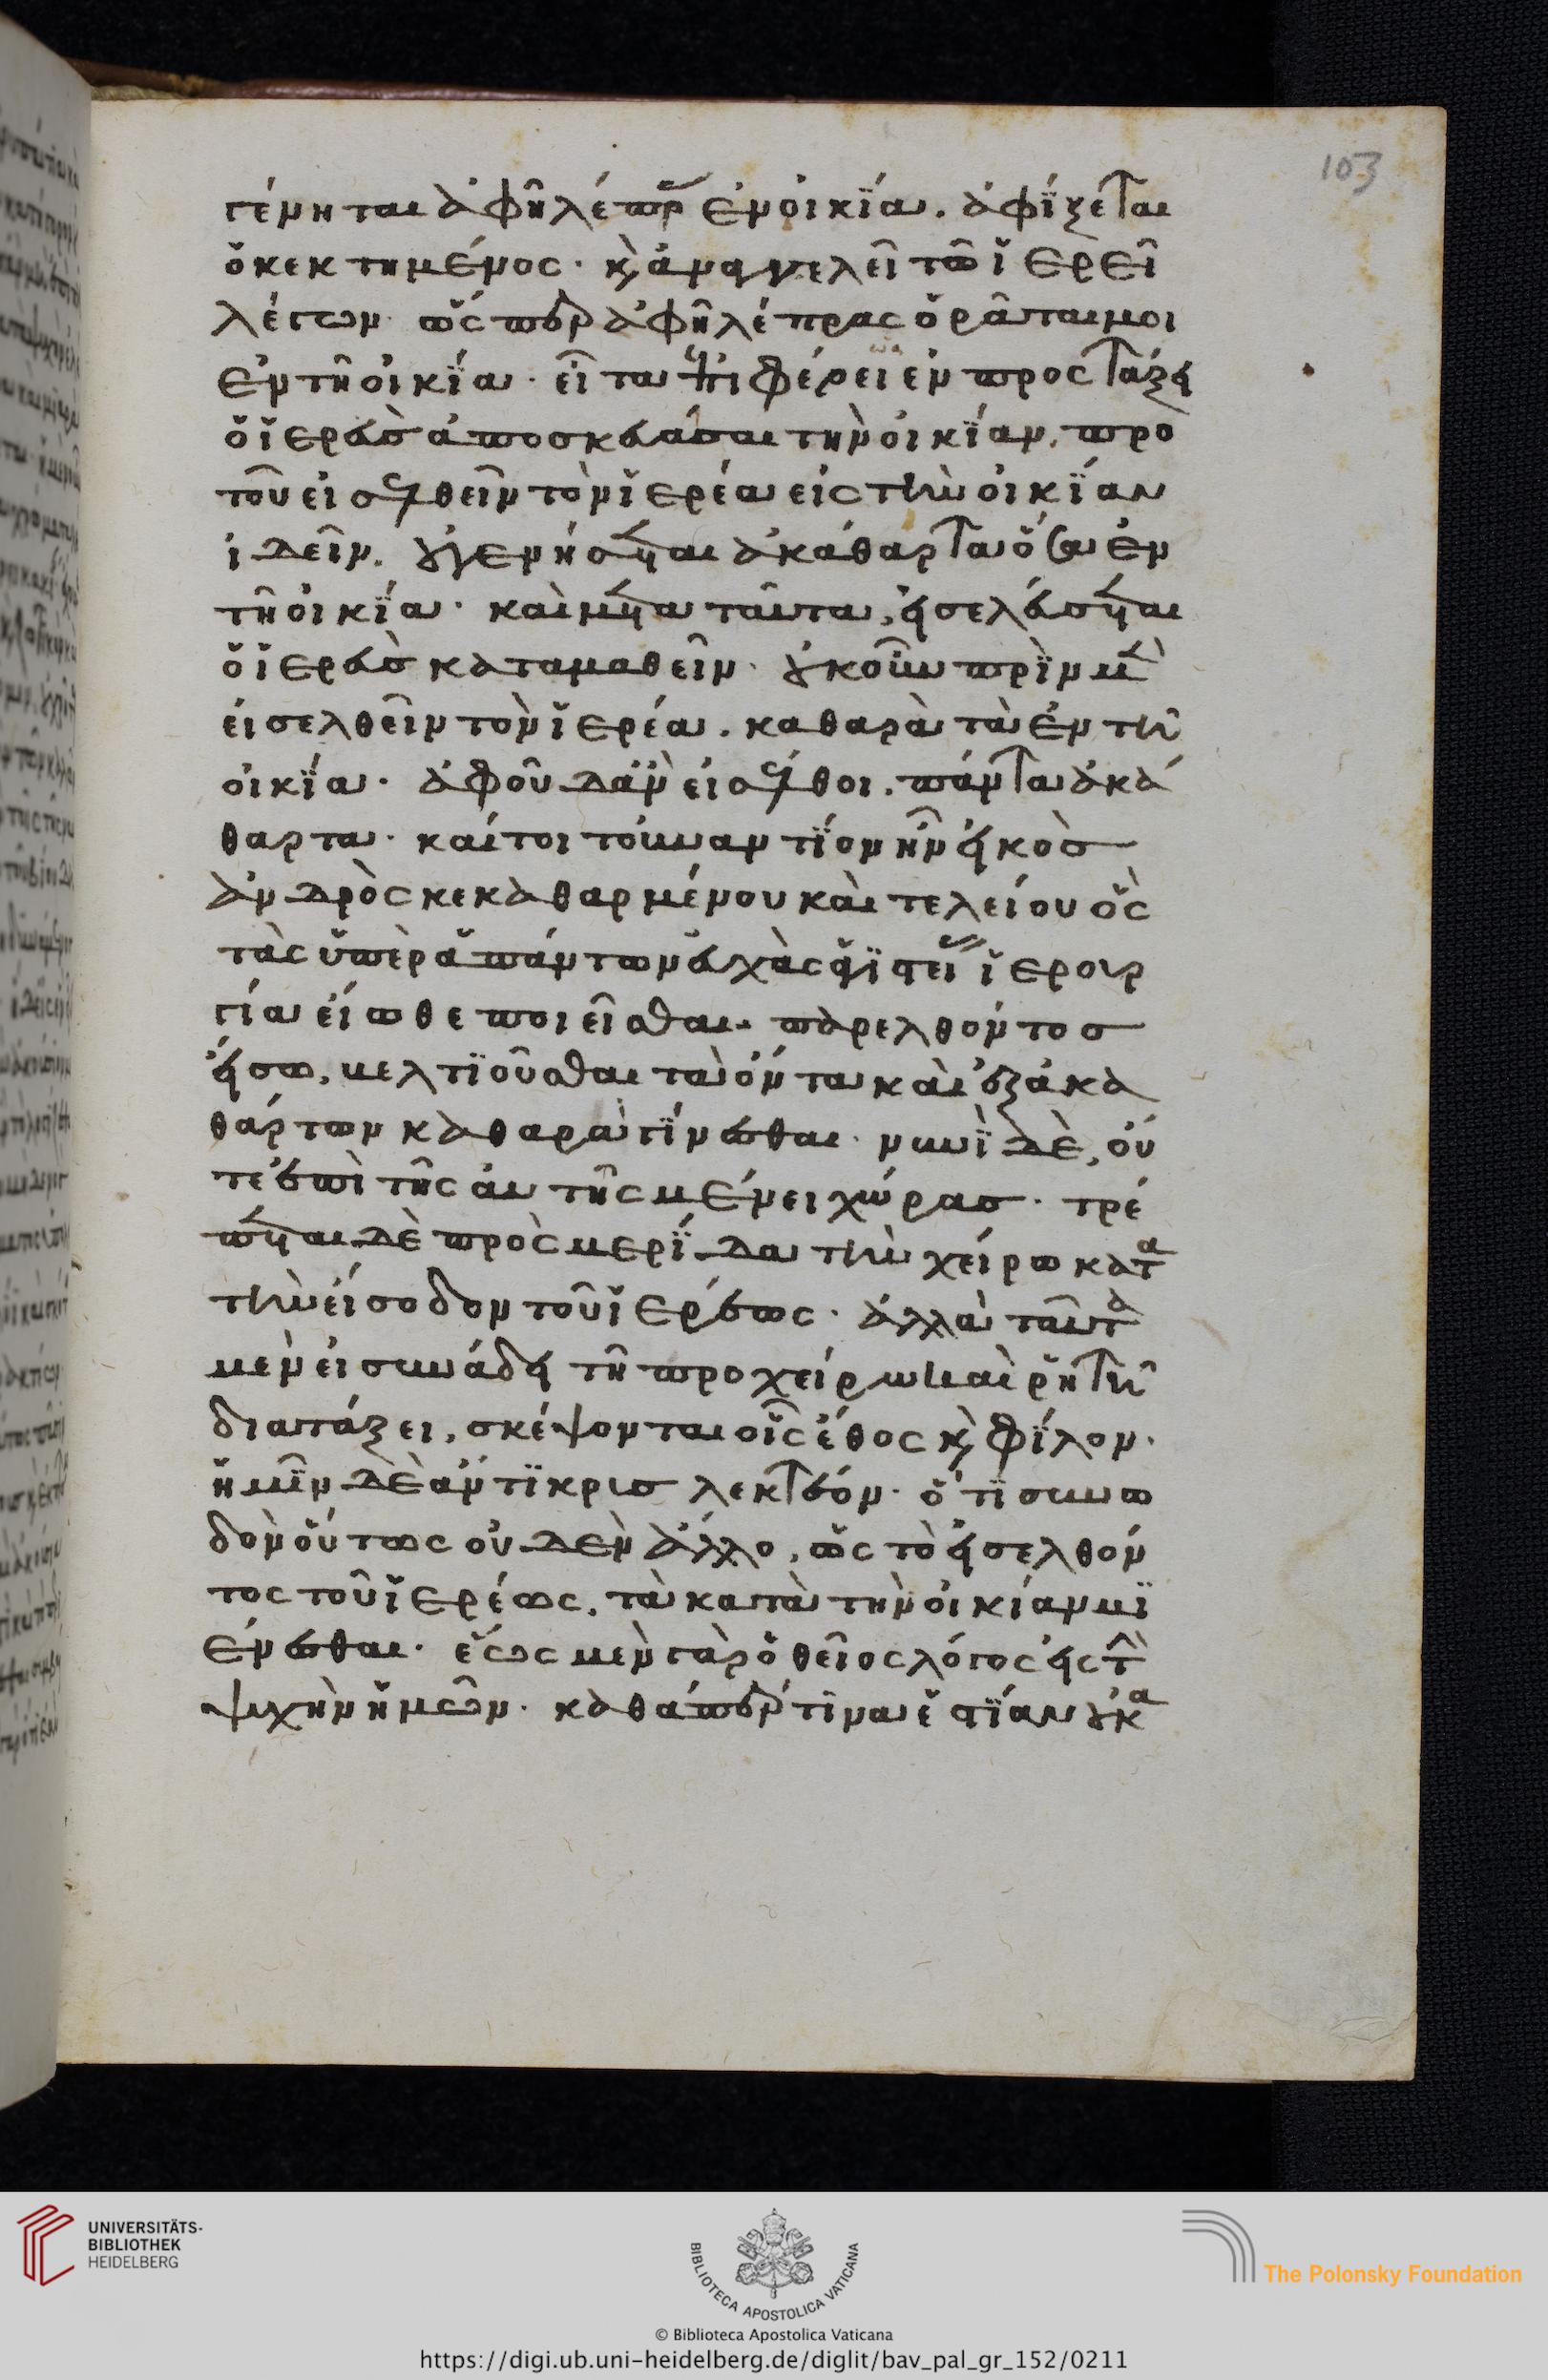 γένηται ἀφῆ λέπρας ἐν οἰκία. ἀφίξεται
ὁ κεκτημένος. καὶ ἀναγγελεῖ τῶ ἱερεῖ
λέγων. ὥσπερ ἀφῆ λέπρας ὁρᾶταί μοι
ἐν τῆ οἰκία. εἶτα ἐπιφέρει ἐν προστάξει
ὁ ἱερεὺς ἀποσκευάσαι τὴν οἰκίαν, πρὸ
τοῦ εἰσελθεῖν τὸν ἱερέα εἰς τὴν οἰκίαν
ἰδεῖν. οὐ γενήσεται ἀκάθαρτα ὅσα ἐν
τῆ οἰκία. καὶ μετὰ ταῦτα, εἰσελεύσεται
ὁ ἱερεὺς καταμαθεῖν. οὐκοῦν πρὶν μὲν
εἰσελθεῖν τὸν ἱερέα. καθαρὰ τὰ ἐν τῆ
οἰκία. ἀφοῦ δἂν εἰσέλθοι. πάντα ἀκά
θαρτα. καίτοι τουναντίον ἦν εἰκὸς
ἀνδρὸς κεκαθαρμένου καὶ τελείου ὃς
τὰς ὑπὲρ ἁπάντων εὐχὰς ἁγιστείας ἱερουρ
γία εἴωθε ποιεῖσθαι. παρελθόντος
εἴσω, βελτιοῦσθαι τὰ ὄντα καὶ ἐξ ἀκα
θάρτων καθαρὰ γίνεσθαι. νυνὶ δὲ, οὔ
τε ἐπὶ τῆς αὐτῆς μένει χώρας. τρέ
πεται δὲ πρὸς μερίδα τὴν χείρω κατὰ
τὴν εἴσοδον τοῦ ἱερέως. ἀλλὰ ταῦτα
μὲν εἰ συνάδει τῆ προχείρω καὶ ῥητῆ
διατάξει, σκέψονται οἷς ἔθος καὶ φίλον.
ἡμῖν δὲ ἄντικρις λεκτέον. ὅτι συνω
δὸν οὕτως οὐδὲν ἄλλο, ὡς τὸ εἰσελθόν
τος τοῦ ἱερέως, τὰ κατὰ τὴν οἰκίαν μι
ένεσθαι. ἕως μὲν γὰρ ὁ θεῖος λόγος εἰς τὴν
ψυχὴν ἡμῶν. καθάπερ τινα ἑστίαν οὐκ α
103
UNIVERSITÄTS-
BIBLIOTHEK
HEIDELBERG
BIBLIOTECA APOSTOLICA VATICANA
© Biblioteca Apostolica Vaticana
The Polonsky Foundation
https://digi.ub.uni-heidelberg.de/diglit/bav_pal_gr_152/0211